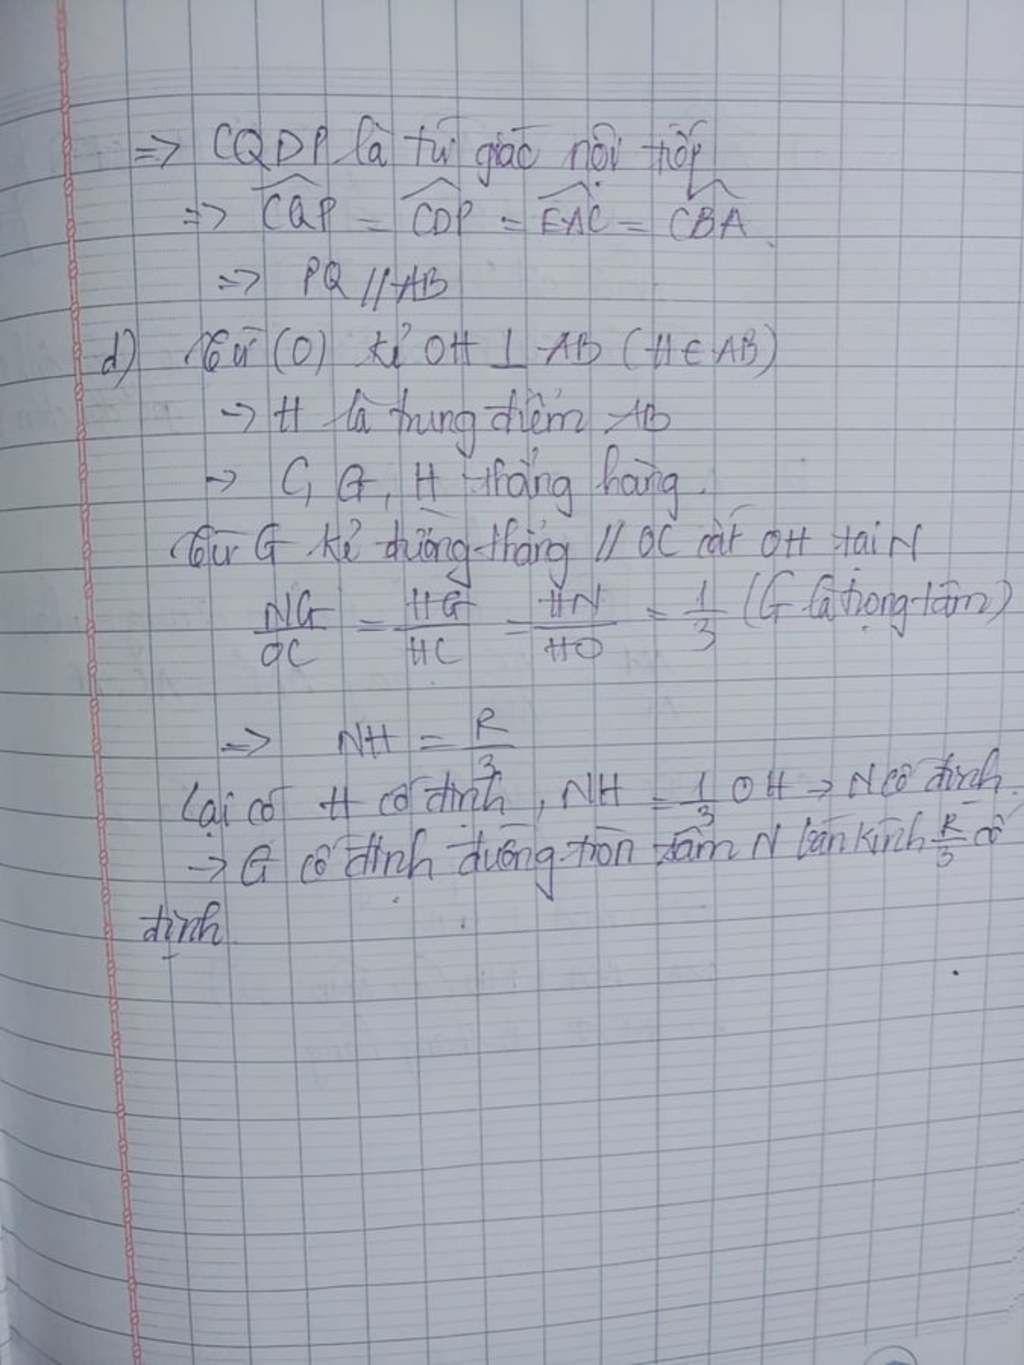 => CQDP là tứ giác nội tiếp
=> CQP = CDP = EAC = CBA
=> PQ // AB
d) Từ (O) kẻ OH ⊥ AB (H ∈ AB)
-> H là trung điểm AB
-> C, G, H thẳng hàng.
Từ G kẻ đường thẳng // OC cắt OH tại N
NG/OC = HG/HC = HN/HO = 1/3 (G là trọng tâm)
=> NH = R/3
Lại có H cố định, NH = 1/3 OH -> N cố định.
-> G cố định đường tròn tâm N bán kính R/3 cố
định